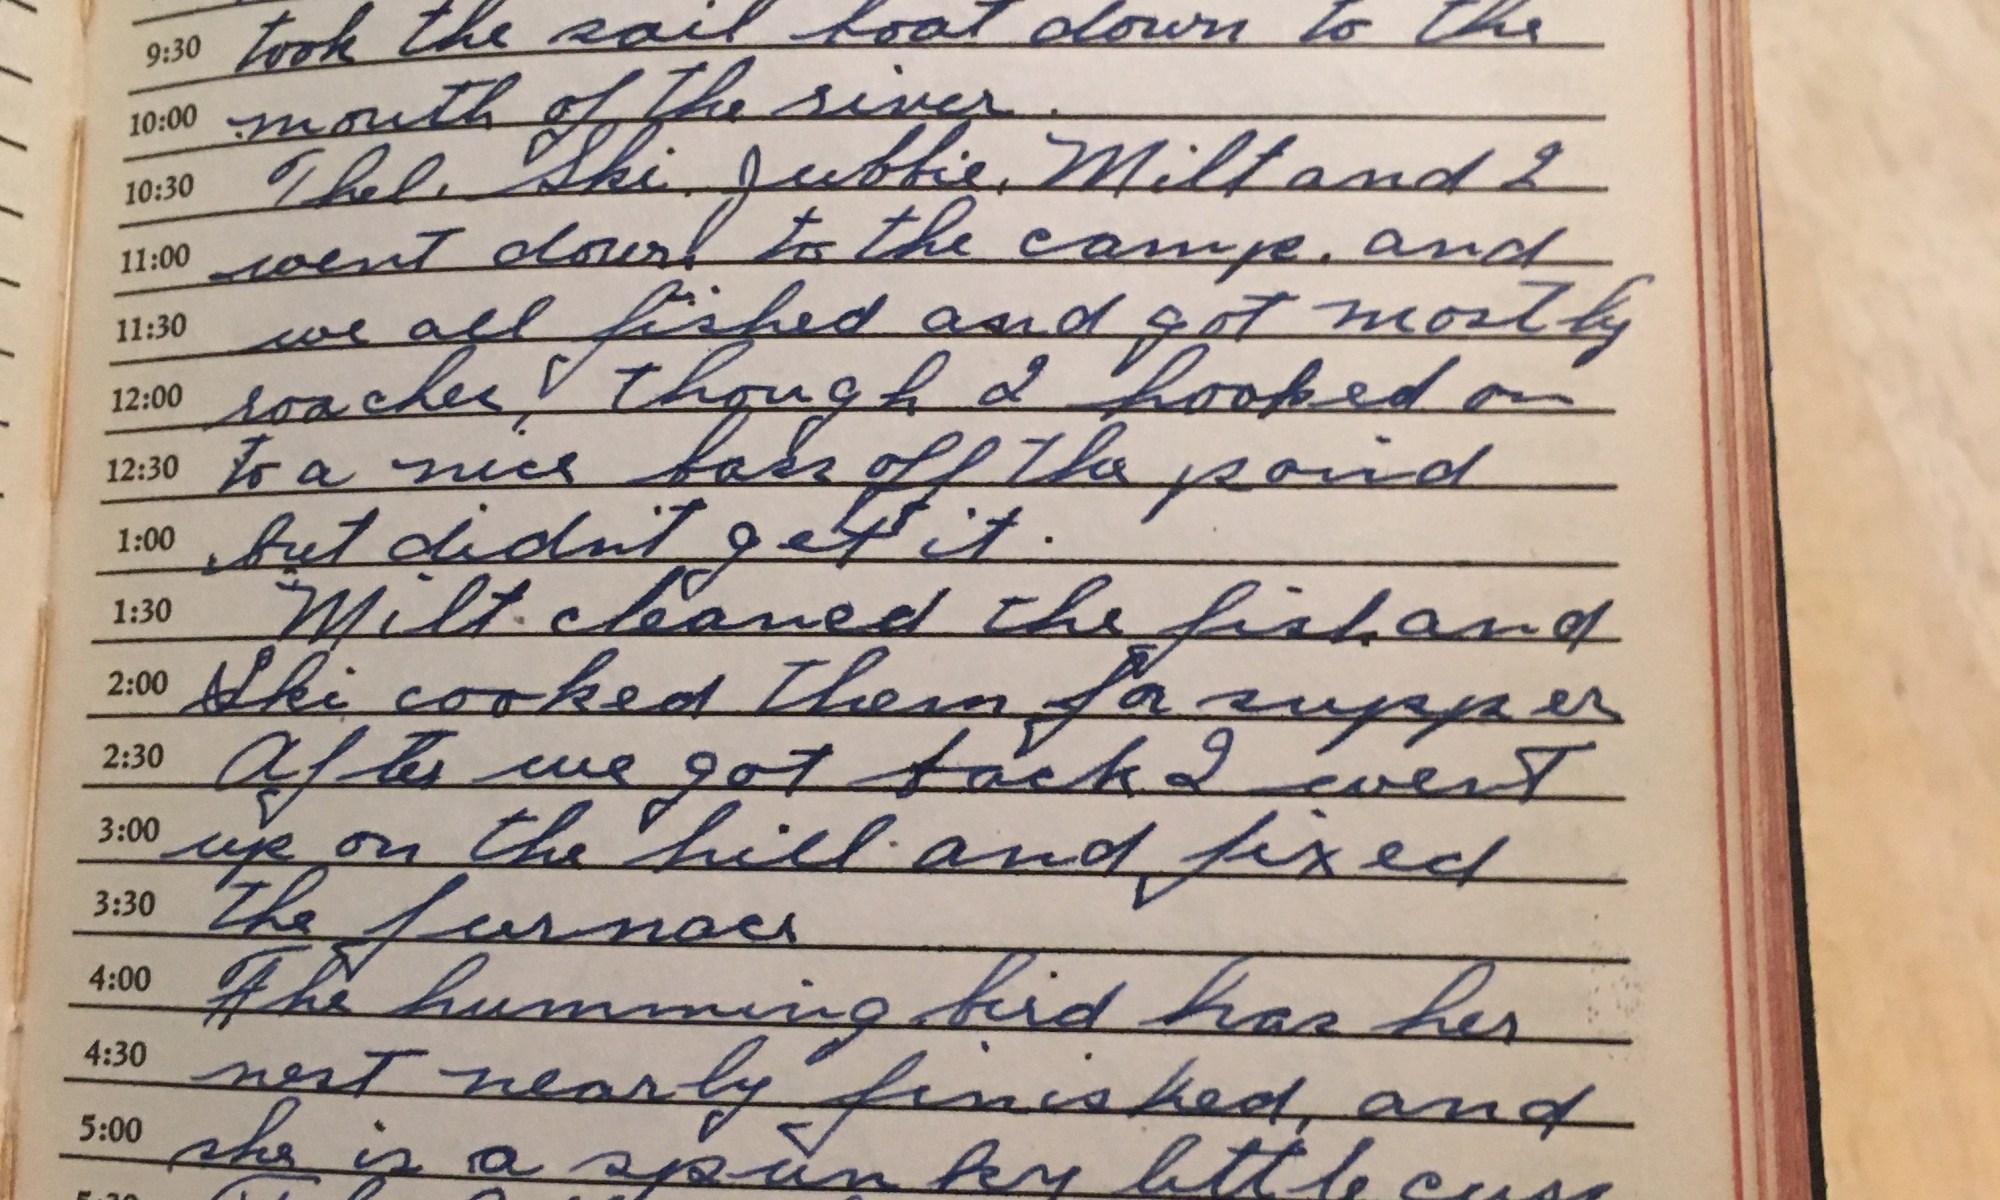 9:30 took the sail boat down to the
10:00 mouth of the river.
10:30 Thel. Ski. Jubbie. Milt and I
11:00 went down to the camp. and
11:30 we all fished and got mostly
12:00 roaches, though I hooked on
12:30 to a nice bass off the point
1:00 but didn't get it.
1:30 Milt cleaned the fish and
2:00 Ski cooked them for supper
2:30 After we got back I went
3:00 up on the hill and fixed
3:30 the furnace
4:00 The humming bird has her
4:30 nest nearly finished, and
5:00 she is a spunky little cuss
5:30